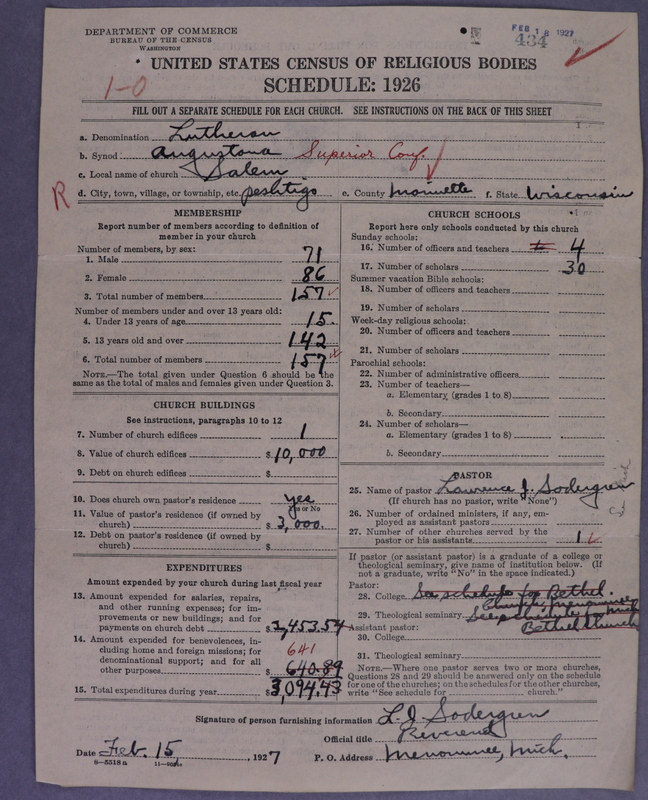 DEPARTMENT OF COMMERCE
BUREAU OF THE CENSUS
WASHINGTON
FEB 18 1927
434
UNITED STATES CENSUS OF RELIGIOUS BODIES
SCHEDULE: 1926
1-0
FILL OUT A SEPARATE SCHEDULE FOR EACH CHURCH. SEE INSTRUCTIONS ON THE BACK OF THIS SHEET
a. Denomination Lutheran
b. Synod Augustana Superior Conf.
c. Local name of church Salem
R d. City, town, village, or township, etc. Peshtigo e. County Marinette f. State Wisconsin
MEMBERSHIP
Report number of members according to definition of
member in your church
Number of members, by sex:
1. Male 71
2. Female 86
3. Total number of members 157
Number of members under and over 13 years old:
4. Under 13 years of age 15
5. 13 years old and over 142
6. Total number of members 157
NOTE.—The total given under Question 6 should be the
same as the total of males and females given under Question 3.
CHURCH BUILDINGS
See instructions, paragraphs 10 to 12
7. Number of church edifices 1
8. Value of church edifices $10,000
9. Debt on church edifices $
10. Does church own pastor's residence yes
Yes or No
11. Value of pastor's residence (if owned by
church) $3,000.
12. Debt on pastor's residence (if owned by
church) $
EXPENDITURES
Amount expended by your church during last fiscal year
13. Amount expended for salaries, repairs,
and other running expenses; for im-
provements or new buildings; and for
payments on church debt $2,453.54
14. Amount expended for benevolences, in-
cluding home and foreign missions; for
denominational support; and for all
other purposes 641 $640.89
15. Total expenditures during year $3,094.43
CHURCH SCHOOLS
Report here only schools conducted by this church
Sunday schools:
16. Number of officers and teachers 4
17. Number of scholars 30
Summer vacation Bible schools:
18. Number of officers and teachers
19. Number of scholars
Week-day religious schools:
20. Number of officers and teachers
21. Number of scholars
Parochial schools:
22. Number of administrative officers
23. Number of teachers—
a. Elementary (grades 1 to 8)
b. Secondary
24. Number of scholars—
a. Elementary (grades 1 to 8)
b. Secondary
PASTOR
25. Name of pastor Lawrence J. Sodergren
(If church has no pastor, write "None")
26. Number of ordained ministers, if any, em-
ployed as assistant pastors
27. Number of other churches served by the
pastor or his assistants 1
If pastor (or assistant pastor) is a graduate of a college or
theological seminary, give name of institution below. (If
not a graduate, write "No" in the space indicated.)
Pastor:
28. College See schedule for Bethel
Church, Menominee, Mich
29. Theological seminary See schedule for
Bethel Church
Assistant pastor:
30. College
31. Theological seminary
NOTE.—Where one pastor serves two or more churches,
Questions 28 and 29 should be answered only on the schedule
for one of the churches; on the schedules for the other churches,
write "See schedule for church."
Signature of person furnishing information L. J. Sodergren
Official title Reverend
Date Feb. 15, 1927 P. O. Address Menominee, Mich.
8-5518 a